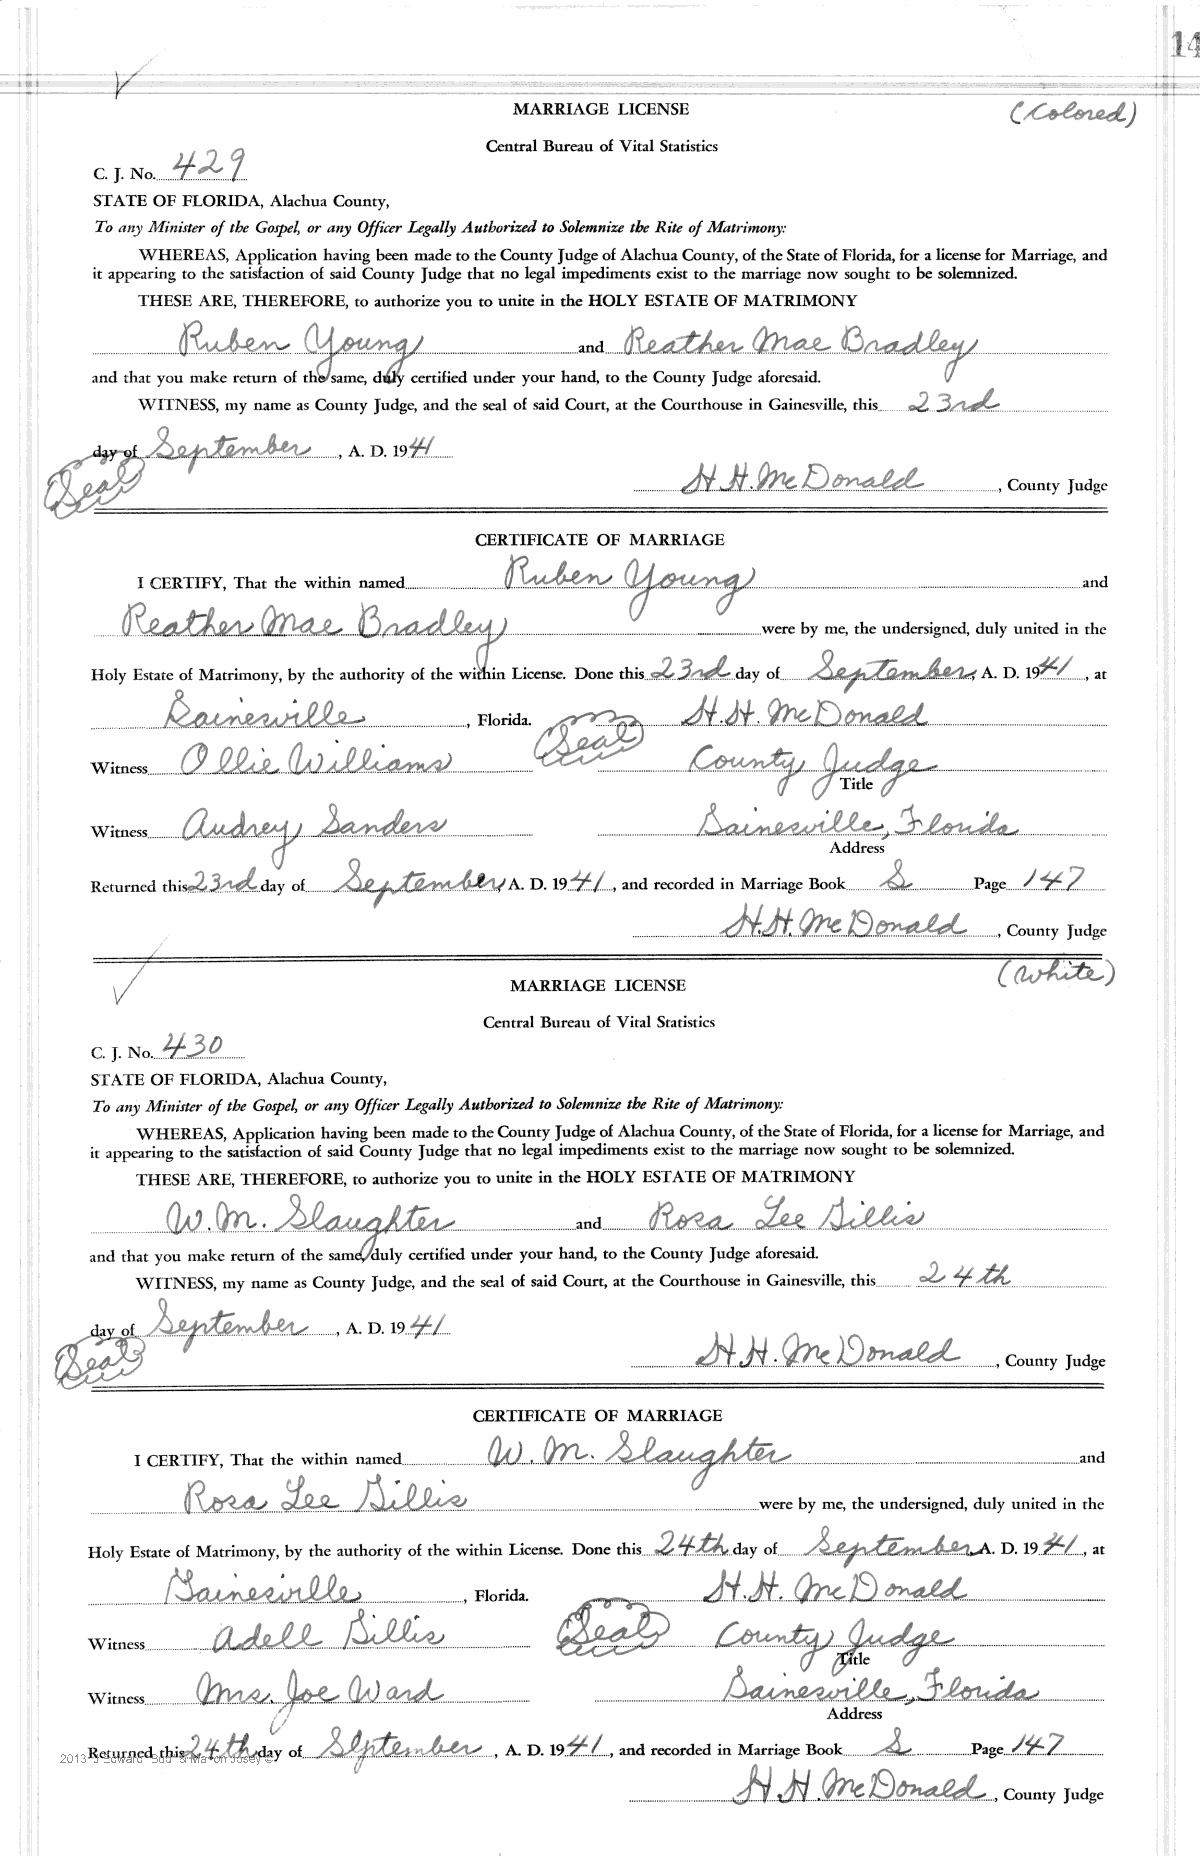 14
MARRIAGE LICENSE
(Colored)
Central Bureau of Vital Statistics
C. J. No. 429
STATE OF FLORIDA, Alachua County,
To any Minister of the Gospel, or any Officer Legally Authorized to Solemnize the Rite of Matrimony:
WHEREAS, Application having been made to the County Judge of Alachua County, of the State of Florida, for a license for Marriage, and
it appearing to the satisfaction of said County Judge that no legal impediments exist to the marriage now sought to be solemnized.
THESE ARE, THEREFORE, to authorize you to unite in the HOLY ESTATE OF MATRIMONY
Ruben Young and Reather Mae Bradley
and that you make return of the same, duly certified under your hand, to the County Judge aforesaid.
WITNESS, my name as County Judge, and the seal of said Court, at the Courthouse in Gainesville, this 23rd
day of September, A. D. 1941
(Seal)
H. H. McDonald, County Judge
CERTIFICATE OF MARRIAGE
I CERTIFY, That the within named Ruben Young and
Reather Mae Bradley were by me, the undersigned, duly united in the
Holy Estate of Matrimony, by the authority of the within License. Done this 23rd day of September, A. D. 1941, at
Gainesville, Florida. (Seal) H. H. McDonald
Witness Ollie Williams County Judge
Title
Witness Audrey Sanders Gainesville, Florida
Address
Returned this 23rd day of September, A. D. 1941, and recorded in Marriage Book S Page 147
H. H. McDonald, County Judge
(White)
MARRIAGE LICENSE
Central Bureau of Vital Statistics
C. J. No. 430
STATE OF FLORIDA, Alachua County,
To any Minister of the Gospel, or any Officer Legally Authorized to Solemnize the Rite of Matrimony:
WHEREAS, Application having been made to the County Judge of Alachua County, of the State of Florida, for a license for Marriage, and
it appearing to the satisfaction of said County Judge that no legal impediments exist to the marriage now sought to be solemnized.
THESE ARE, THEREFORE, to authorize you to unite in the HOLY ESTATE OF MATRIMONY
W. M. Slaughter and Rosa Lee Gillis
and that you make return of the same, duly certified under your hand, to the County Judge aforesaid.
WITNESS, my name as County Judge, and the seal of said Court, at the Courthouse in Gainesville, this 24th
day of September, A. D. 1941
(Seal)
H. H. McDonald, County Judge
CERTIFICATE OF MARRIAGE
I CERTIFY, That the within named W. M. Slaughter and
Rosa Lee Gillis were by me, the undersigned, duly united in the
Holy Estate of Matrimony, by the authority of the within License. Done this 24th day of September A. D. 1941, at
Gainesville, Florida. H. H. McDonald
Witness Adell Gillis (Seal) County Judge
Title
Witness Mrs. Joe Ward Gainesville, Florida
Address
Returned this 24th day of September, A. D. 1941, and recorded in Marriage Book S Page 147
2013 J Edward
H. H. McDonald, County Judge